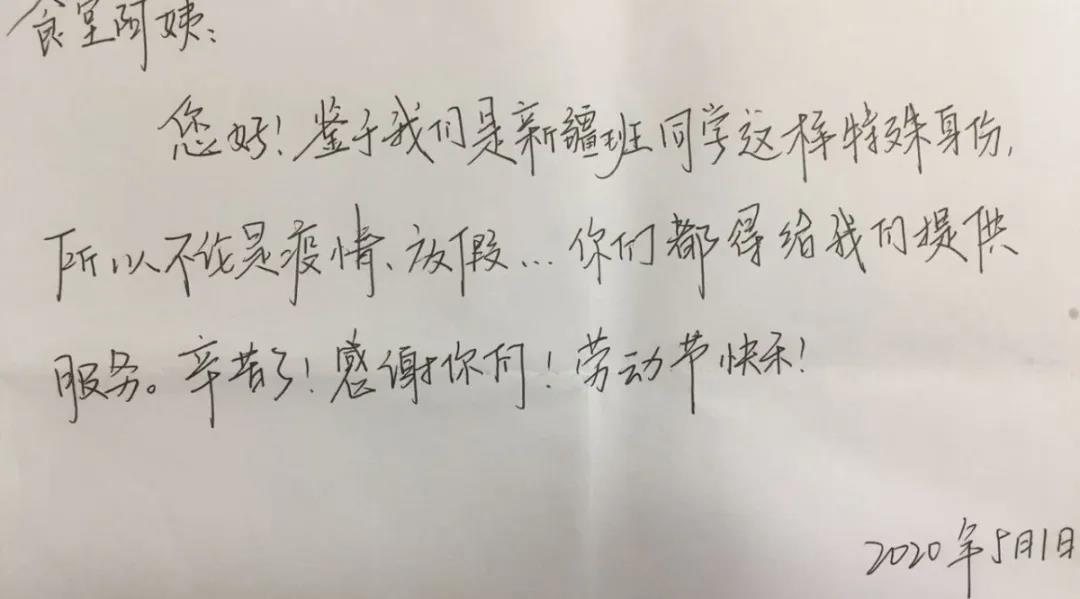 食堂阿姨：
您好！鉴于我们是新疆班同学这样特殊身份，
所以不论是疫情、放假…你们都得给我们提供
服务。辛苦了！感谢你们！劳动节快乐！
2020年5月1日